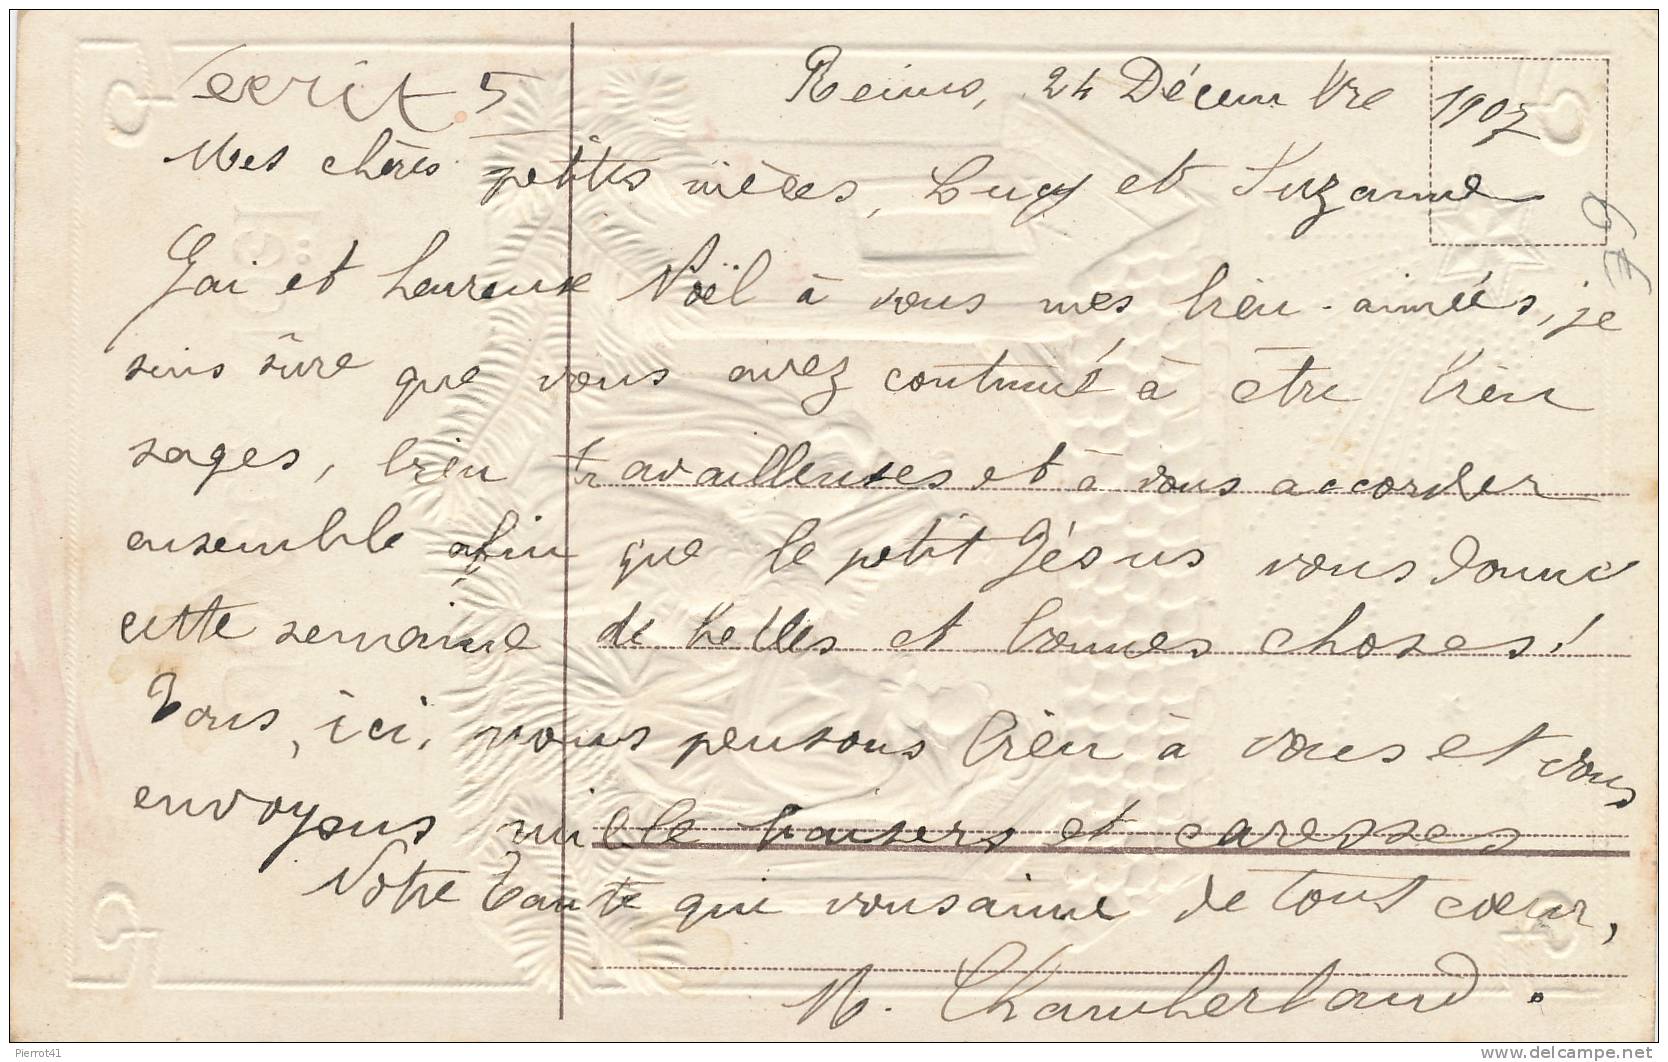 ecrit 5
Reims, 24 Décembre 1907
Mes chères petites nièces, Lucy et Suzanne
Gai et heureuse Noël à vous mes bien-aimées, je
suis sûre que vous avez continué à être bien
sages, bien travailleuses et à vous accorder
ensemble afin que le petit Jésus vous donne
cette semaine de belles et bonnes choses!
Tous, ici, nous pensons bien à vous et vous
envoyons mille baisers et caresses
Votre Tante qui vous aime de tout cœur,
M. Chamberland.
Pierrot41
delcampe.net